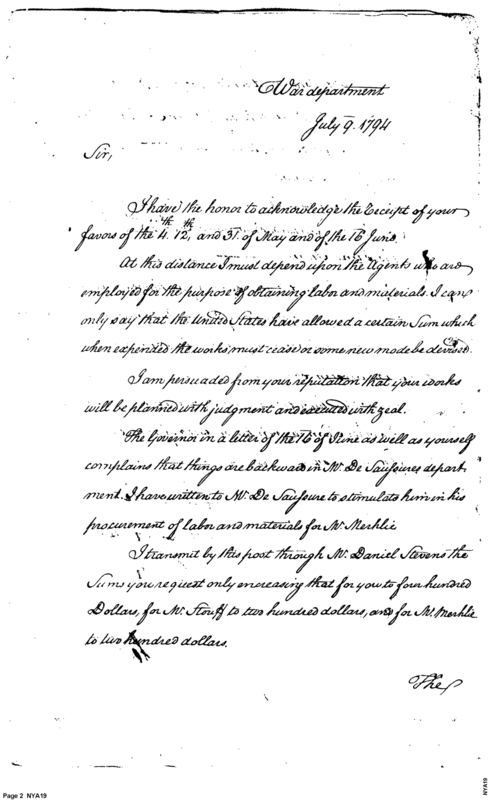 War department
July 9. 1794
Sir,
I have the honor to acknowledge the Receipt of your
favors of the 4th 12th, and 31 of May and of the 16 June.
At this distance I must depend upon the Agents who are
employed for the purpose of obtaining labor and materials. I can
only say that the United States have allowed a certain Sum which
when expended the works must cease or some new mode be devised.
I am persuaded from your reputation that your works
will be planned with judgment and executed with zeal.
The Governor in a letter of the 16 of June as well as yourself
complains that things are backward in Mr. De Saussures depart
ment. I have written to Mr. De Saussure to stimulate him in his
procurement of labor and materials for Mr. Merklie
I transmit by this post through Mr. Daniel Stevens the
Sums you request only encreasing that for you to four hundred
Dollars, for Mr. to two hundred dollars, and for Mr. Merklie
to two hundred dollars.
The
Page 2 NYA19
NYA19